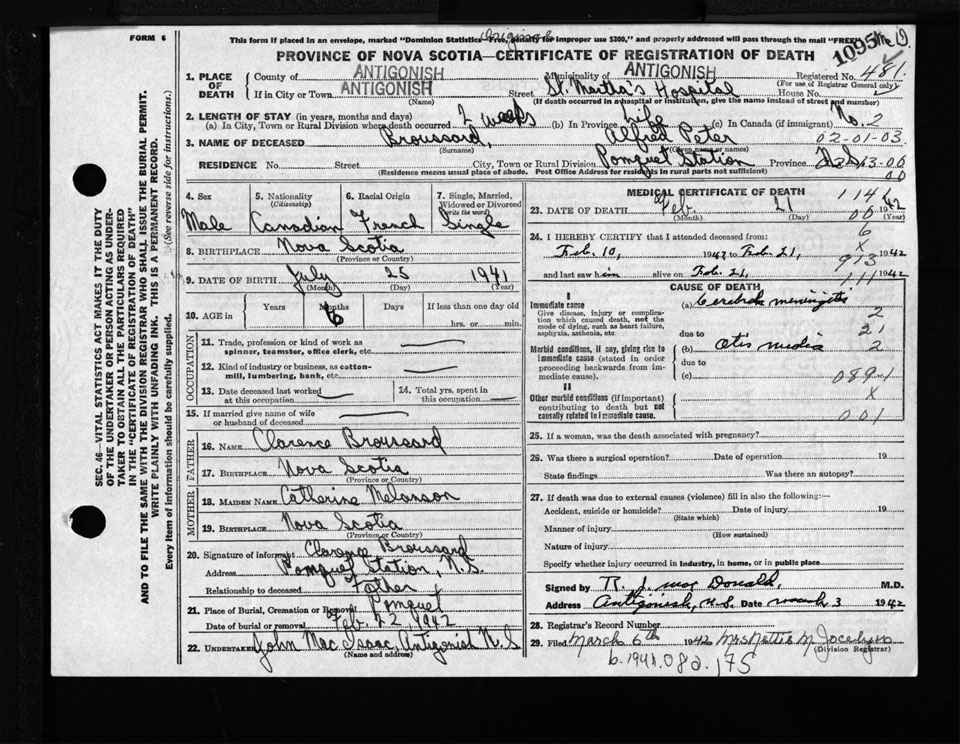 FORM 6
This form if placed in an envelope, marked "Dominion Statistics—Free, penalty for improper use $300," and properly addressed will pass through the mail "FREE"
PROVINCE OF NOVA SCOTIA—CERTIFICATE OF REGISTRATION OF DEATH
1095
1. PLACE OF DEATH
County of ANTIGONISH Municipality of ANTIGONISH Registered No. 481
(For use of Registrar General only)
If in City or Town ANTIGONISH Street St. Martha's Hospital House No.
(Name) (If death occurred in a hospital or institution, give the name instead of street and number)
2. LENGTH OF STAY (in years, months and days)
(a) In City, Town or Rural Division where death occurred 2 weeks (b) In Province Life (c) In Canada (if immigrant) No. 2
3. NAME OF DECEASED Broussard, Alfred Peter 02-01-03
(Surname) (Given name or names)
RESIDENCE No. Street City, Town or Rural Division Pomquet Station Province N.S. 13-00
(Residence means usual place of abode. Post Office Address for residents in rural parts not sufficient) 00
4. Sex 5. Nationality (Citizenship) 6. Racial Origin 7. Single, Married, Widowed or Divorced (write the word)
Male Canadian French Single
8. BIRTHPLACE Nova Scotia
(Province or Country)
9. DATE OF BIRTH July 25 1941
(Month) (Day) (Year)
10. AGE in Years Months Days If less than one day old
6 hrs. or min.
OCCUPATION
11. Trade, profession or kind of work as spinner, teamster, office clerk, etc.
12. Kind of industry or business, as cotton-mill, lumbering, bank, etc.
13. Date deceased last worked at this occupation
14. Total yrs. spent in this occupation
15. If married give name of wife or husband of deceased
FATHER
16. NAME Clarence Broussard
17. BIRTHPLACE Nova Scotia
(Province or Country)
MOTHER
18. MAIDEN NAME Catherine Melanson
19. BIRTHPLACE Nova Scotia
(Province or Country)
20. Signature of informant Clarence Broussard
Address Pomquet Station, N.S.
Relationship to deceased Father
21. Place of Burial, Cremation or Removal Pomquet
Date of burial or removal Feb. 22, 1942
22. UNDERTAKER John Mac Isaac, Antigonish N.S
(Name and address)
MEDICAL CERTIFICATE OF DEATH 1141
23. DATE OF DEATH Feb. 21 1942
(Month) (Day) (Year)
24. I HEREBY CERTIFY that I attended deceased from: 6
Feb. 10, 1942 to Feb. 21, 1942
X
913
and last saw him alive on Feb. 21, 1942
111
CAUSE OF DEATH
I
Immediate cause
Give disease, injury or complication which caused death, not the mode of dying, such as heart failure, asphyxia, asthenia, etc
(a) Cerebral meningitis
2
due to 21
Morbid conditions, if any, giving rise to immediate cause (stated in order proceeding backwards from immediate cause).
(b) Otis media 2
due to
(c) 089-1
II
Other morbid conditions (if important) contributing to death but not causally related to immediate cause.
X
001
25. If a woman, was the death associated with pregnancy?
26. Was there a surgical operation? Date of operation 19
State findings Was there an autopsy?
27. If death was due to external causes (violence) fill in also the following:—
Accident, suicide or homicide? Date of injury 19
(State which)
Manner of injury
(How sustained)
Nature of injury
Specify whether injury occurred in industry, in home, or in public place
Signed by R. J. Mac Donald, M.D.
Address Antigonish, N.S. Date March 3 1942
28. Registrar's Record Number
29. Filed March 6th 1942 Mrs Nettie M Jocelyn
(Division Registrar)
b. 1941. 082. 175
SEC. 46—VITAL STATISTICS ACT MAKES IT THE DUTY
OF THE UNDERTAKER OR PERSON ACTING AS UNDER-
TAKER TO OBTAIN ALL THE PARTICULARS REQUIRED
IN THE "CERTIFICATE OF REGISTRATION OF DEATH"
AND TO FILE THE SAME WITH THE DIVISION REGISTRAR WHO SHALL ISSUE THE BURIAL PERMIT.
WRITE PLAINLY WITH UNFADING INK. THIS IS A PERMANENT RECORD.
Every item of information should be carefully supplied. (See reverse side for instructions.)